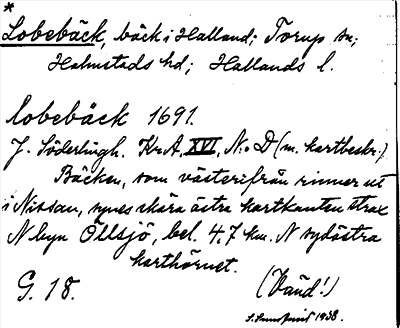 *
Lobebäck, bäck i Halland; Torup sn;
Halmstads hd; Hallands l.
lobebäck 1691.
J. Söderlingh. KrA, XVI, N:o D (m. kartbeskr.)
Bäcken, som västerifrån rinner ut
i Nissan, synes skära östra kartkanten strax
N byn Öllsjö, bel. 4,7 km. N sydöstra
karthörnet.
G. 18.
(Vänd!)
1938.